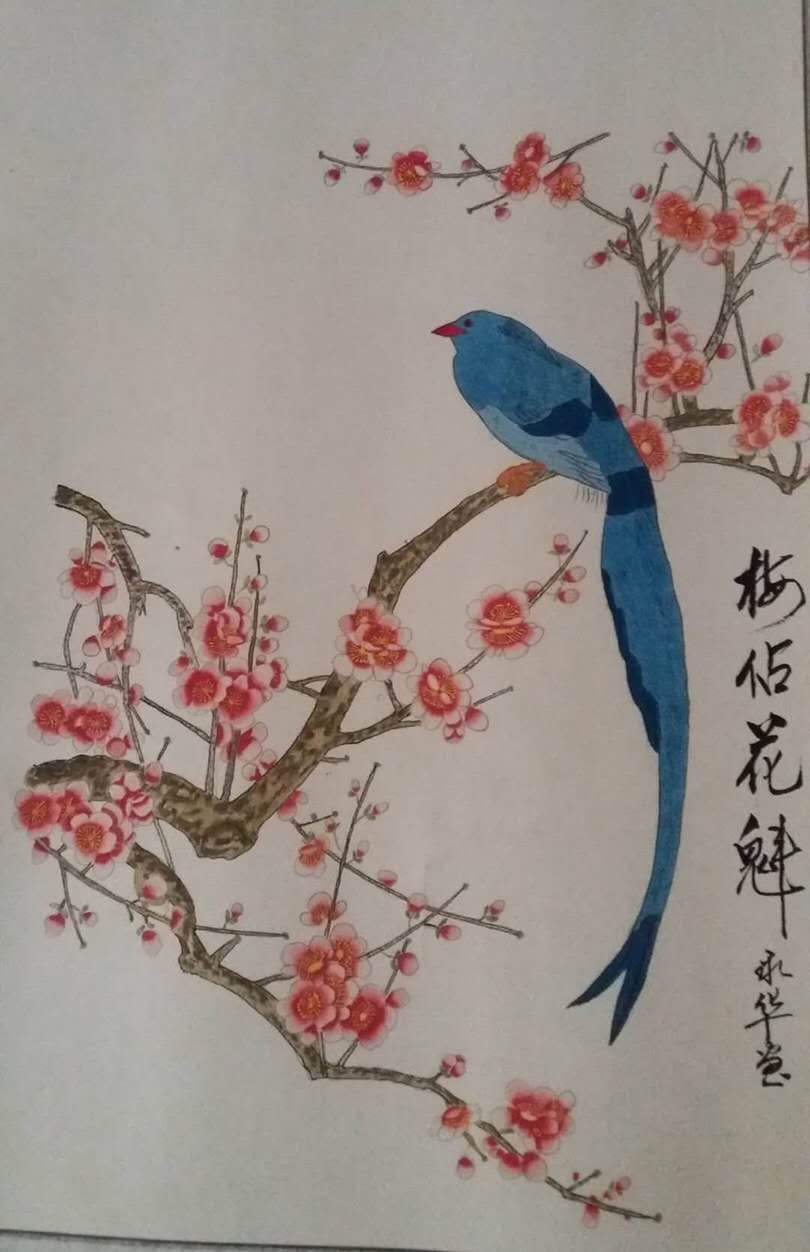 梅佔花魁
永华画